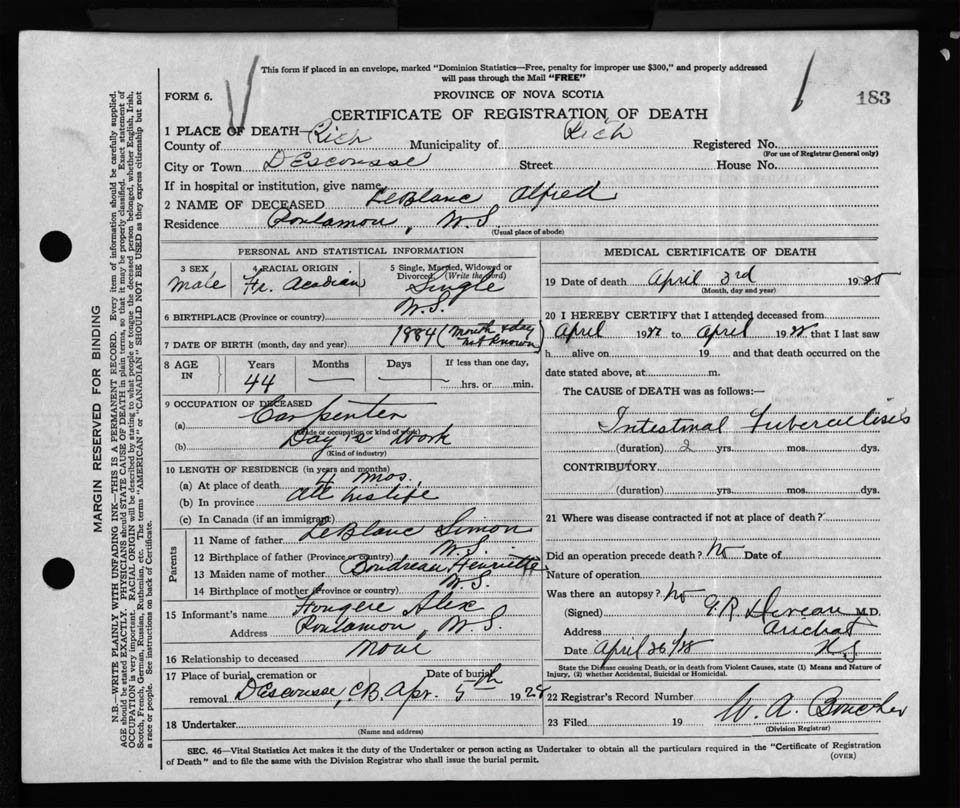 This form if placed in an envelope, marked "Dominion Statistics—Free, penalty for improper use $300," and properly addressed
will pass through the Mail "FREE"
FORM 6.
PROVINCE OF NOVA SCOTIA
183
CERTIFICATE OF REGISTRATION OF DEATH
1 PLACE OF DEATH—
County of Rich Municipality of Rich Registered No.
(For use of Registrar General only)
City or Town D'Escousse Street House No.
If in hospital or institution, give name
2 NAME OF DECEASED LeBlanc Alfred
Residence Poulamon, N.S.
(Usual place of abode)
PERSONAL AND STATISTICAL INFORMATION
3 SEX 4 RACIAL ORIGIN 5 Single, Married, Widowed or
Divorced (Write the word)
Male Fr. Acadian Single
6 BIRTHPLACE (Province or country) N.S.
7 DATE OF BIRTH (month, day and year) 1884 (Month & day
not known)
8 AGE IN Years Months Days If less than one day,
44 — — hrs. or min.
9 OCCUPATION OF DECEASED
(a) Carpenter
(Trade or occupation or kind of work)
(b) Day's Work
(Kind of industry)
10 LENGTH OF RESIDENCE (in years and months)
(a) At place of death 4 mos.
(b) In province all his life
(c) In Canada (if an immigrant)
Parents
11 Name of father LeBlanc Simon
12 Birthplace of father (Province or country) N.S.
13 Maiden name of mother Boudreau Henriette
14 Birthplace of mother (Province or country) N.S.
15 Informant's name Fougere Alex
Address Poulamon, N.S.
16 Relationship to deceased None
17 Place of burial, cremation or Date of burial
removal D'Escousse, C.B. Apr. 5th 1928
18 Undertaker
(Name and address)
MEDICAL CERTIFICATE OF DEATH
19 Date of death April 3rd 1928
(Month, day and year)
20 I HEREBY CERTIFY that I attended deceased from
April 1928 to April 1928 that I last saw
h alive on 19 and that death occurred on the
date stated above, at m.
The CAUSE of DEATH was as follows:—
Intestinal Tuberculosis
(duration) 2 yrs. mos. dys.
CONTRIBUTORY
(duration) yrs. mos. dys.
21 Where was disease contracted if not at place of death?
Did an operation precede death? No Date of
Nature of operation
Was there an autopsy? No
(Signed) M.D.
Address Arichat
Date April 26/28 N.S
State the Disease causing Death, or in death from Violent Causes, state (1) Means and Nature of
Injury, (2) whether Accidental, Suicidal or Homicidal.
22 Registrar's Record Number
23 Filed 19 W. A. Boucher
(Division Registrar)
SEC. 46—Vital Statistics Act makes it the duty of the Undertaker or person acting as Undertaker to obtain all the particulars required in the "Certificate of Registration
of Death" and to file the same with the Division Registrar who shall issue the burial permit.
(OVER)
MARGIN RESERVED FOR BINDING
N.B.—WRITE PLAINLY WITH UNFADING INK—THIS IS A PERMANENT RECORD. Every item of information should be carefully supplied.
AGE should be stated EXACTLY. PHYSICIANS should STATE CAUSE OF DEATH in plain terms, so that it may be properly classified. Exact statement of
OCCUPATION is very important. RACIAL ORIGIN will be described by stating to what people or tongue the deceased person belonged, whether English, Irish,
Scotch, French, German, Russian, Ruthenian, etc. The terms "AMERICAN" or "CANADIAN" SHOULD NOT BE USED as they express citizenship but not
a race or people. See instructions on back of Certificate.